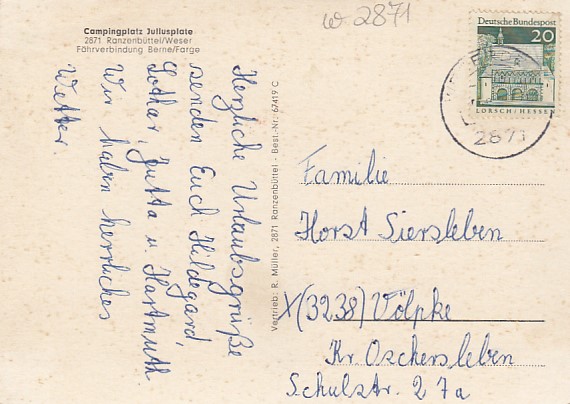 Campingplatz Juliusplate
2871 Ranzenbüttel/Weser
Fährverbindung Berne/Farge
w 2871
Deutsche Bundespost
20
LORSCH/HESSEN
2871
Herzliche Urlaubsgrüße
senden Euch Hildegard,
Lothar, Jutta u Hartmuth
Wir haben herrliches
Wetter
Vertrieb: R. Müller, 2871 Ranzenbüttel - Best.-Nr. 67419 C
Familie
Horst Siersleben
X(3238) Völpke
Kr. Oschersleben
Schulstr. 27a